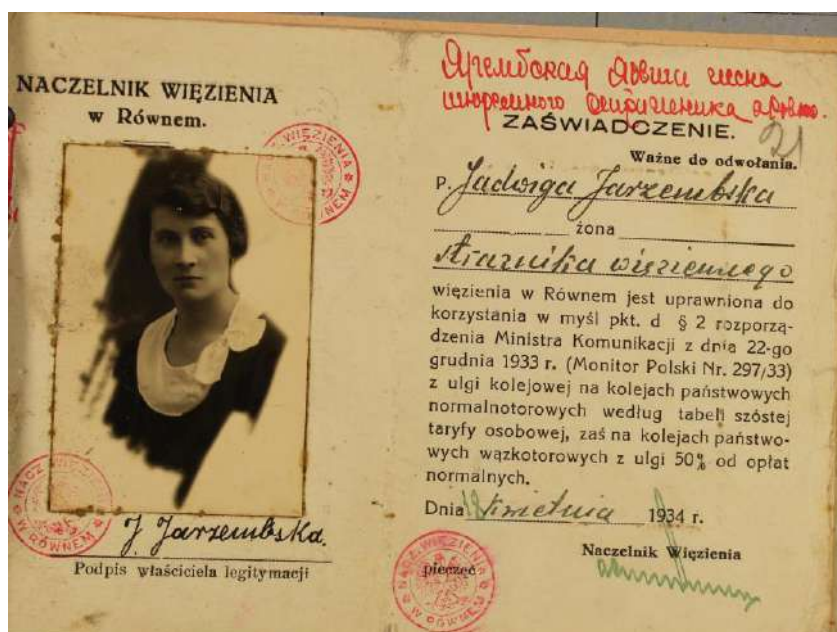 NACZELNIK WIĘZIENIA
w Równem.
J. Jarzembska.
Podpis właściciela legitymacji
ZAŚWIADCZENIE.
21
Ważne do odwołania.
P. Jadwiga Jarzembska
żona
strażnika więziennego
więzienia w Równem jest uprawniona do
korzystania w myśl pkt. d § 2 rozporzą-
dzenia Ministra Komunikacji z dnia 22-go
grudnia 1933 r. (Monitor Polski Nr. 297/33)
z ulgi kolejowej na kolejach państwowych
normalnotorowych według tabeli szóstej
taryfy osobowej, zaś na kolejach państwo-
wych wązkotorowych z ulgi 50% od opłat
normalnych.
Dnia kwietnia 1934 r.
Naczelnik Więzienia
pieczęć
NACZ. WIĘZIENIA
W RÓWNEM